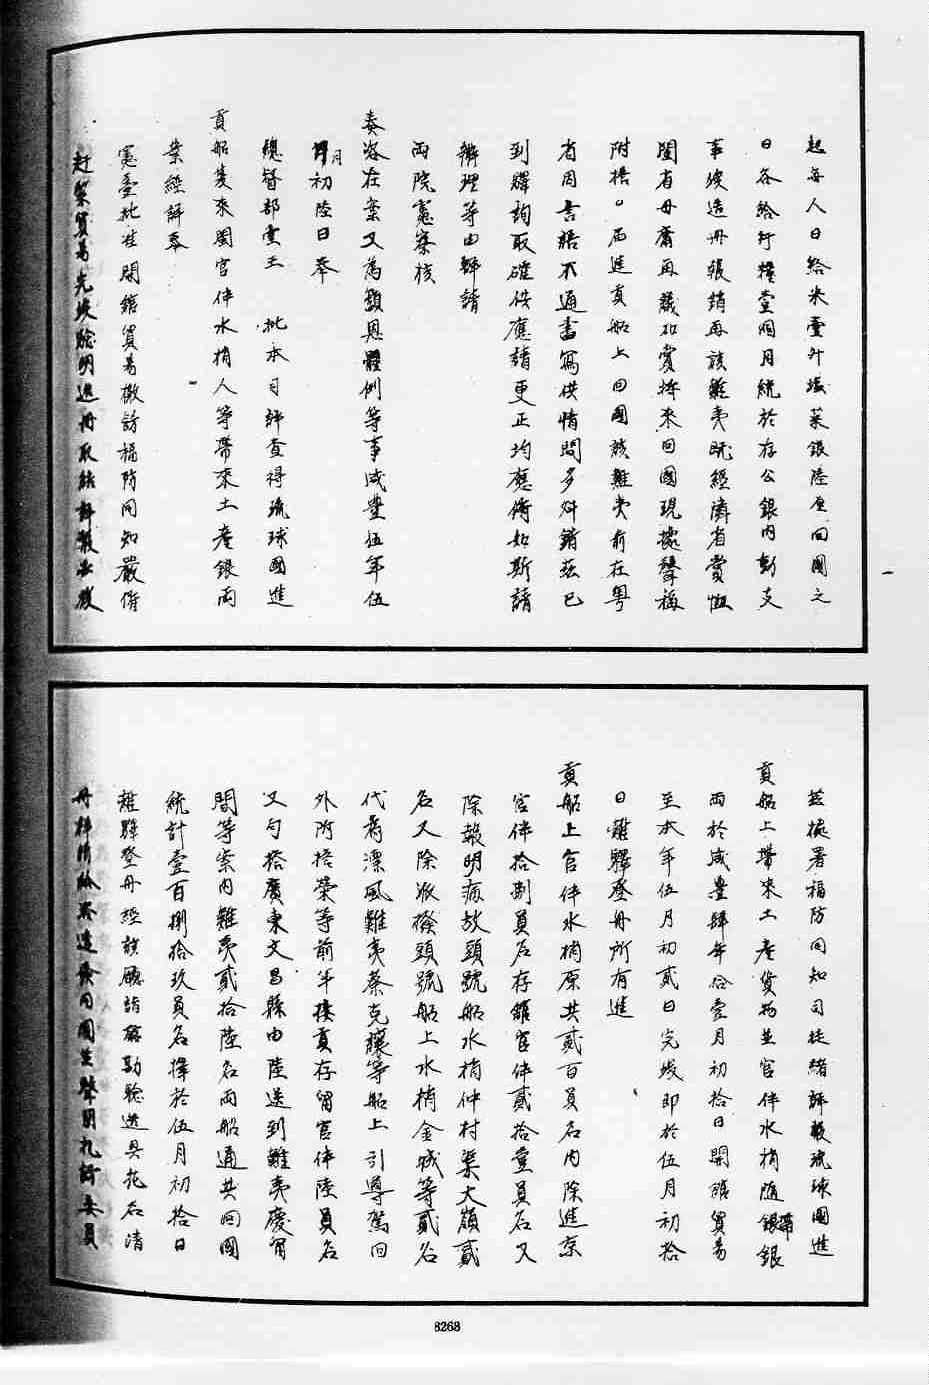 起每人日給米壹升塩菜銀陸厘回國之
日各給行糧壹個月統於存公銀內動支
事竣造冊報銷再該難夷既經濟省賞恤
閩省毋庸再議加賞將來回國現據聲稱
附搭。而進貢船上回國該難夷前在粵
省因言語不通書寫供情間多舛錯茲已
到驛詢取確供應請更正均應俯如斯請
辦理等由轉請
兩院憲察核
奏咨在案又為頒恩體例等事咸豐伍年伍
月初陸日奉
總督部堂王 批本司詳查得琉球國進
貢船隻來閩官伴水梢人等帶來土產銀兩
業經詳奉
憲臺批准開館貿易檄飭福防同知嚴備
趕緊貿易完竣驗明造冊取結詳報
茲據署福防同知司徒緒詳報琉球國進
貢船上帶來土產貨物並官伴水梢隨帶銀
兩於咸豐肆年拾壹月初拾日開館貿易
至本年伍月初貳日完竣即於伍月初拾
日離驛登舟所有進
貢船上官伴水梢原共貳百員名內除進京
官伴拾捌員名存館官伴貳拾壹員名又
除報明病故頭號船水梢仲村渠大嶺貳
名又除派撥頭號船上水梢金城等貳名
代為漂風難夷蔡克讓等船上引導駕回
外附搭榮等前年接貢存留官伴陸員名
又勻搭廣東文昌縣由陸送到難夷慶留
間等案內難夷貳拾陸名兩船通共回國
統計壹百捌拾玖員名擇於伍月初拾日
離驛登舟經該廳請勘驗造具花名清
冊移行回國並聲明札飭委員
8268